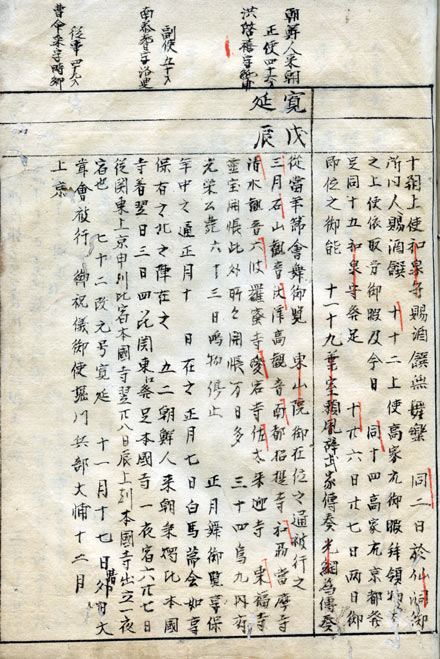 朝鮮人来朝
正使四十六才
洪啓禧字純甫
副使五十八
南泰耆字洛叟
従事四十九
曹命采字時卿
寛延
戊辰
十朔上使和泉守賜酒饌無舞 同二日於仙洞御
所門人賜酒饌 十十二上使高家九御暇拜領物
之上使依取労御暇及今日 同十四高家九京都発
足同十五和泉守発足 十廿六日廿七日両日御
即位之御能 十一十九葉室頼胤辞武家傳奏光綱為傳奏
從當年節會舞御覽 東山院御在位之通被行之
三月石山観音大津高観音南都招提寺和州當麻寺
清水観音六波羅蜜寺愛宕寺佐太来迎寺東福寺
霊宝開帳此外所々開帳万日多 三十四烏丸内府
光栄公薨六十三日鳴物停止 正月舞御覽享保
年中之通正月十 日在之正月七日白馬節會如享
保有之北之陣在之 五二朝鮮人来朝燭比本國
寺着翌日三日四関東江発足本國寺一夜宿六廿七日
従関東上京申刻比宿本國寺翌廿八日辰上刻本國寺出立一夜
宿也 七十二改元号寛延 十一月十七日大
甞會被行 御祝儀御使堀川兵部大輔十二月
上京